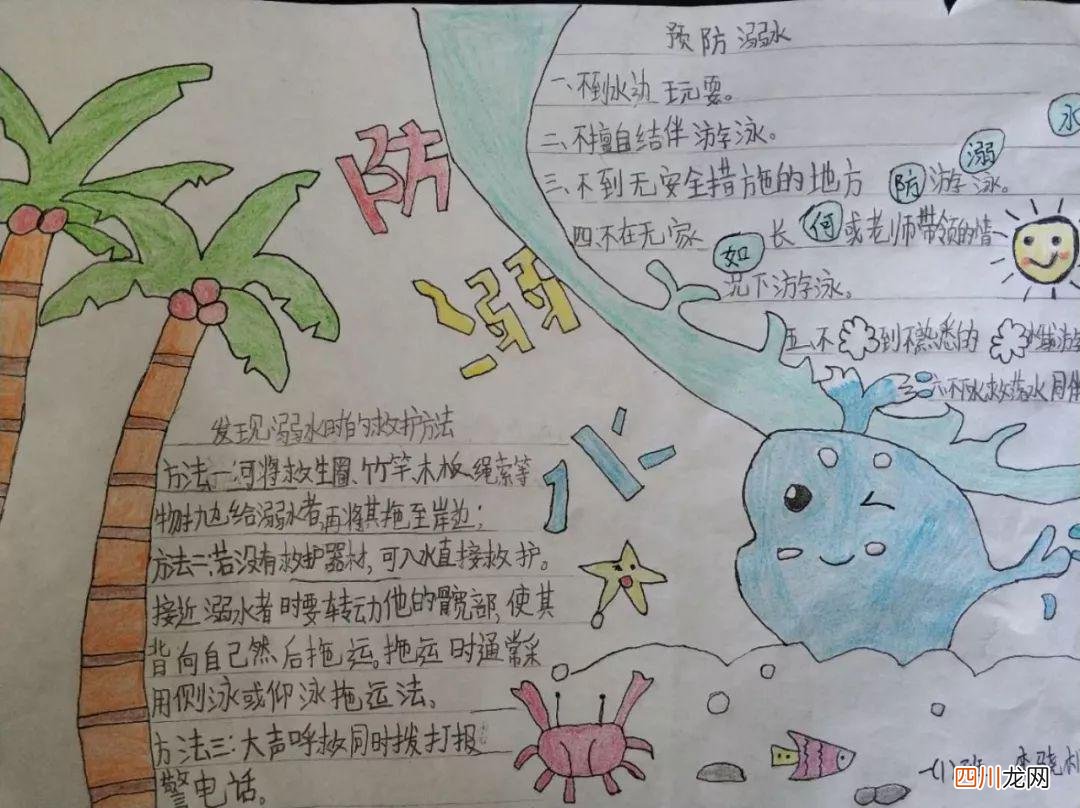 预防溺水
一、不到水边玩耍。
二、不擅自结伴游泳。
三、不到无安全措施的地方游泳。
四、不在无家长或老师带领的情
况下游泳。
五、不到不熟悉的水域游
六、不下水救落水同伴
如何防溺水
防溺水
发现溺水时的救护方法
方法一:可将救生圈、竹竿、木板、绳索等
物抛给溺水者,再将其拖至岸边;
方法二:若没有救护器材,可入水直接救护。
接近溺水者时要转动他的髋部,使其
背向自己然后拖运。拖运时通常采
用侧泳或仰泳拖运法。
方法三:大声呼救同时拨打报
警电话。
四川龙网